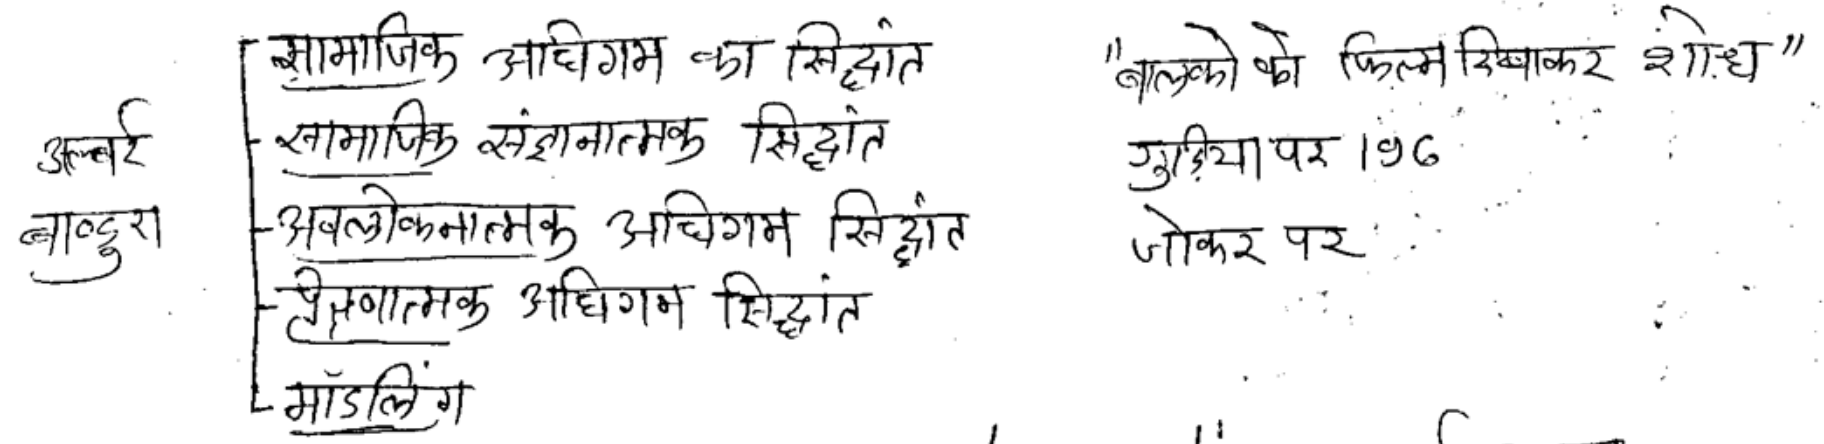 सामाजिक अधिगम का सिद्धांत
सामाजिक संज्ञानात्मक सिद्धांत
अल्बर्ट
बाण्डुरा
अवलोकनात्मक अधिगम सिद्धांत
प्रेक्षणात्मक अधिगम सिद्धांत
मॉडलिंग
"बालको को फिल्म दिखाकर शोध"
गुड़िया पर 196
जोकर पर